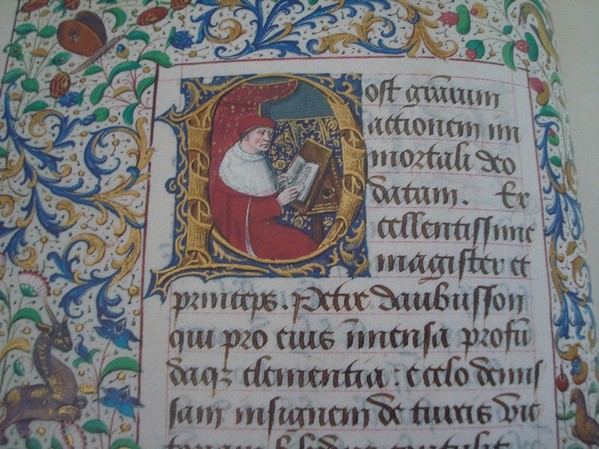 Post gr̄arum
actionem im
mortali deo
datam. Ex
cellentissime
magister et
princeps. Petre daubusson
qui pro eius im̄ensa profū
daqꝫ clementia: e celo demis
sam insignem de turcis vic
toriam contulit